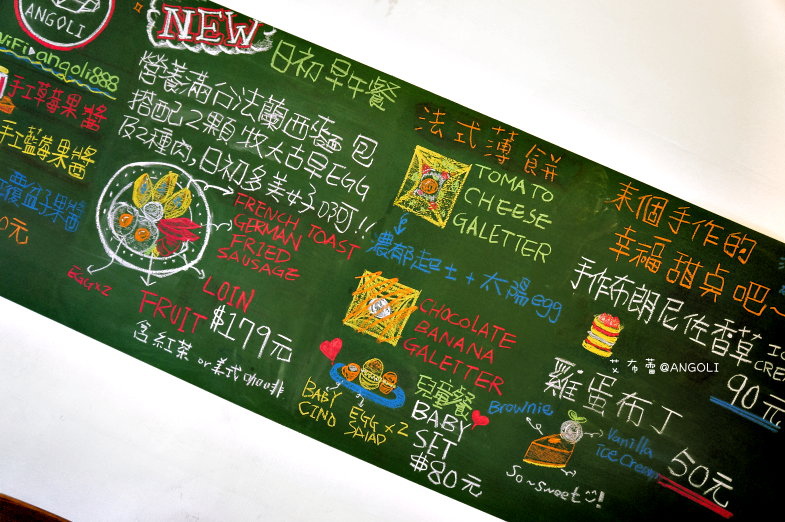 ANGOLI
WiFi▸angoli888
手工草莓果醬
手工藍莓果醬
覆盆子果醬
0元
NEW
日初早午餐
營養滿分法蘭西麵包
搭配2顆牧大古早EGG
及2種肉,日初多美好啊!!
FRENCH TOAST
GERMAN
FRIED
SAUSAGE
EGG×2
FRUIT
LOIN
$179元
含紅茶 or 美式咖啡
法式薄餅
TOMATO
CHEESE
GALETTER
濃郁起士+太陽egg
CHOCOLATE
BANANA
GALETTER
兒童餐
BABY
SET
$80元
BABY
CIND
EGG×2
SALAD
來個手作的
幸福甜点吧~
手作布朗尼佐香草
90元
雞蛋布丁
50元
Brownie
Vanilla
ice cream
So~sweet!
艾布蕾@ANGOLI